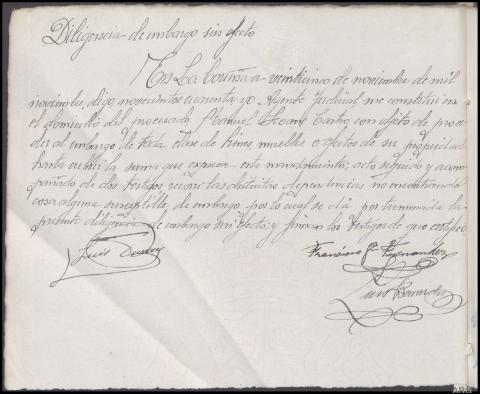 Diligencia de embargo sin efecto
En La Coruña a veintiuno de noviembre de mil
noviembre, digo, novecientos cuarenta, yo Agente Judicial me constituí en
el domicilio del procesado Manuel Seoane Castro con objeto de proce-
der al embargo de toda clase de bienes muebles o efectos de su propiedad
hasta cubrir la suma que expresa este mandamiento; acto seguido y acom-
pañado de dos testigos recorrí las distintas dependencias no encontrando
cosa alguna susceptible de embargo por lo cual se da por terminada la
presente diligencia de embargo sin efecto; y firman los testigos de que certifico
Francisco Fernandez
Luis
Luis Bermudez